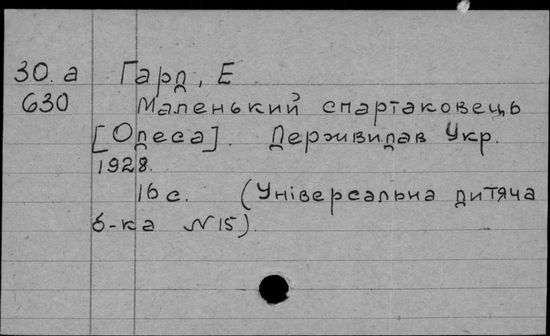 30. а Гард, Е
630 Маленький спартаковець
[Одеса]. Держвидав Укр.
1928.
16 с. (Універсальна дитяча
б-ка №15).